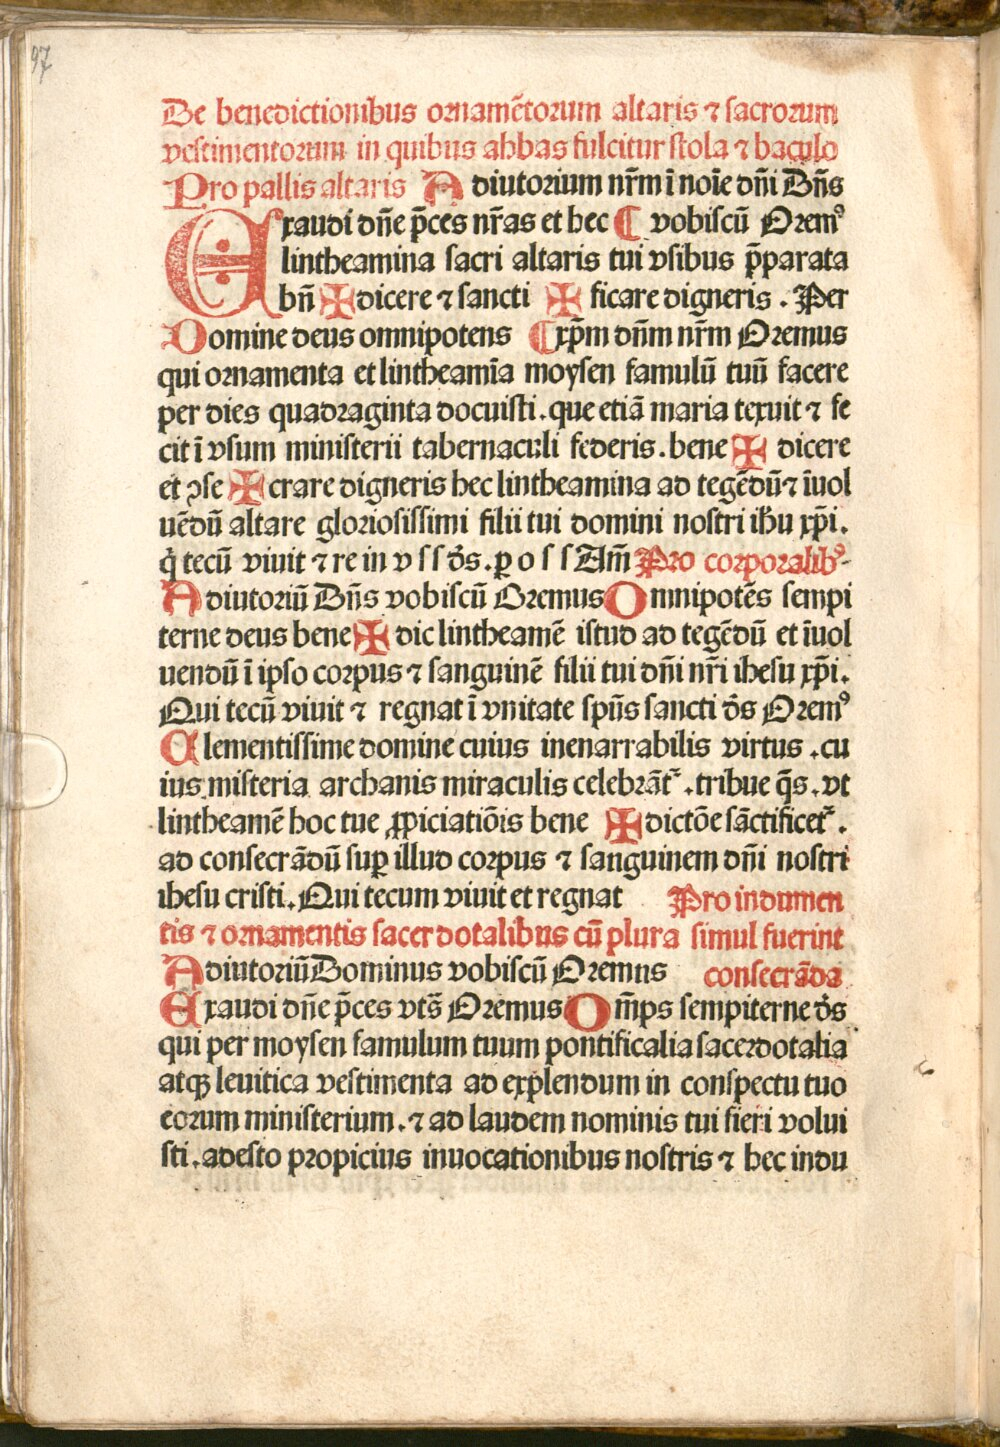 97
De benedictionibus ornamētorum altaris ⁊ sacrorum
vestimentorum in quibus abbas fulcitur stola ⁊ baculo
Pro pallis altaris Adiutorium nr̄m ī noīe dn̄i Dn̄s
Exaudi dn̄e p̄ces nr̄as et hec ¶ vobiscū Oremꝰ
lintheamina sacri altaris tui vsibus p̄parata
bn̄ ✠ dicere ⁊ sancti ✠ ficare digneris . Per
Domine deus omnipotens ¶ xp̄m dn̄m nr̄m Oremus
qui ornamenta et lintheamīa moysen famulū tuū facere
per dies quadraginta docuisti . que etiā maria texuit ⁊ fe
cit ī vsum ministerii tabernaculi federis . bene ✠ dicere
et ꝯse ✠ crare digneris hec lintheamina ad tegēdū ⁊ īuol
uēdū altare gloriosissimi filii tui domini nostri ihū xp̄i .
q̇ tecū viuit ⁊ re in v s s ds̄ . ꝑ o s s Am̄ Pro corporalibꝰ
Adiutoriū Dn̄s vobiscū Oremus Omnipotēs sempi
terne deus bene ✠ dic lintheamē istud ad tegēdū et īuol
uendū ī ipso corpus ⁊ sanguinē filii tui dn̄i nr̄i ihesu xp̄i .
Qui tecū viuit ⁊ regnat ī vnitate spūs sancti ds̄ Oremꝰ
Clementissime domine cuius inenarrabilis virtus . cu
ius misteria archanis miraculis celebrāt᷑ . tribue q̄s . vt
lintheamē hoc tue ꝓpiciatiōis bene ✠ dictōe sāctificet᷑ .
ad consecrādū suꝑ illud corpus ⁊ sanguinem dn̄i nostri
ihesu cristi . Qui tecum viuit et regnat Pro indumen
tis ⁊ ornamentis sacerdotalibus cū plura simul fuerint
Adiutoriū Dominus vobiscū Oremus consecrāda
Exaudi dn̄e p̄ces vts̄ Oremus Om̄ps sempiterne ds̄
qui per moysen famulum tuum pontificalia sacerdotalia
atqꝫ leuitica vestimenta ad explendum in conspectu tuo
eorum ministerium . ⁊ ad laudem nominis tui fieri volui
sti . adesto propicius inuocationibus nostris ⁊ hec indu